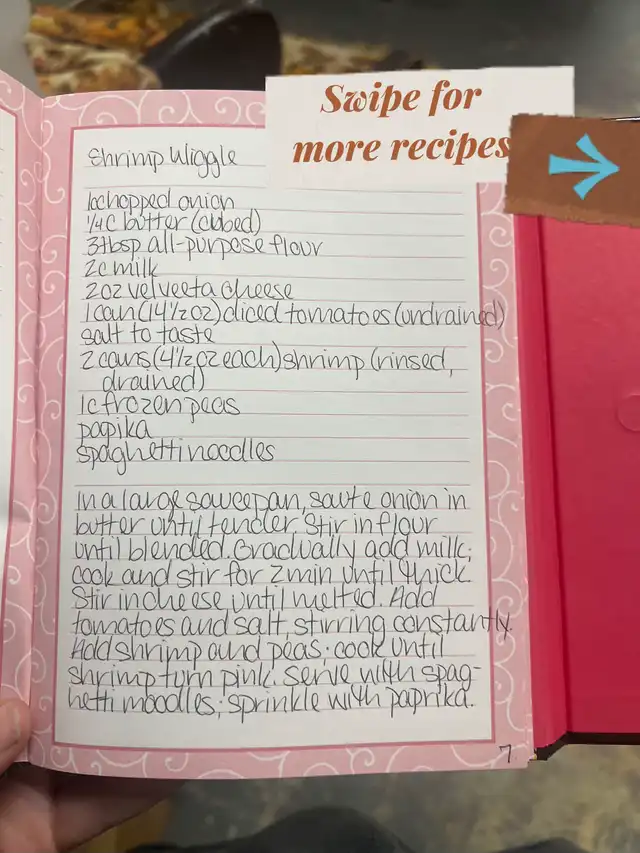 Swipe for
more recipes
Shrimp Wiggle
1c chopped onion
1/4 c butter (cubed)
3 tbsp all-purpose flour
2c milk
2oz velveeta cheese
1 can (14 1/2 oz) diced tomatoes (undrained)
salt to taste
2 cans (4 1/2 oz each) shrimp (rinsed,
drained)
1c frozen peas
papika
spaghetti noodles
In a large saucepan, saute onion in
butter until tender. Stir in flour
until blended. Gradually add milk;
cook and stir for 2 min until thick.
Stir in cheese until melted. Add
tomatoes and salt, stirring constantly.
Add shrimp and peas; cook until
shrimp turn pink. Serve with spag-
hetti moodles; sprinkle with paprika.
7